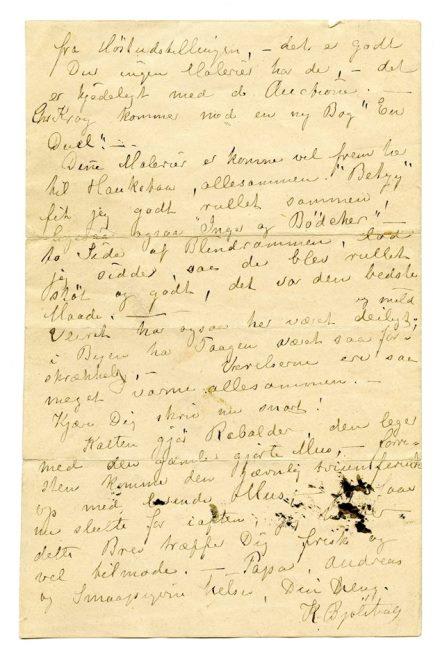 fra Høstudstillingen, — det er godt
Du ingen Malerier har der, — det
er kjedeligt med de Auctioner. —
Chr Krog kommer med en ny Bog "En
Duel". —
Dine Malerier er komne vel frem her
til Hauketo, allesammen. "Betzy"
fik jeg godt rullet sammen,
ogsaa "Inger og Bødcker" —
to Sider af Blindrammen, lod
jeg sidde, saa de blev rullet
godt, det var den bedste
Maade. —
Veiret har ogsaa her været deiligt og mild
i Byen har Taagen været saa for-
skrækkelig, — Værelserne ere saa
meget varme allesammen. —
Kjære Dig skriv nu snart!
Katten gjør Rabalder, den leger
med den gamle gjorte Mus, — forre-
sten kommer den jævnlig
op med levende Mus
nu slutte for iaften,
dette Brev træffe Dig frisk og
vel tilmode. — Papa, Andreas
og Smaapigerne hilser, Din Deng.
K Bjølstad